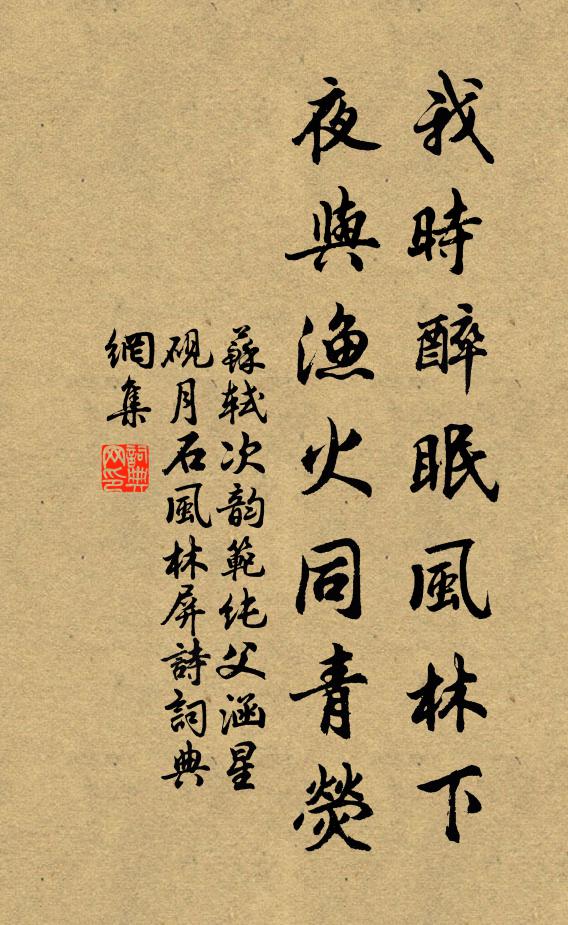 我時醉眠風林下
夜與漁火同青熒
蘇軾次韵範純父涵星
硯月石風林屏詩詞典
網集
詞典
网印